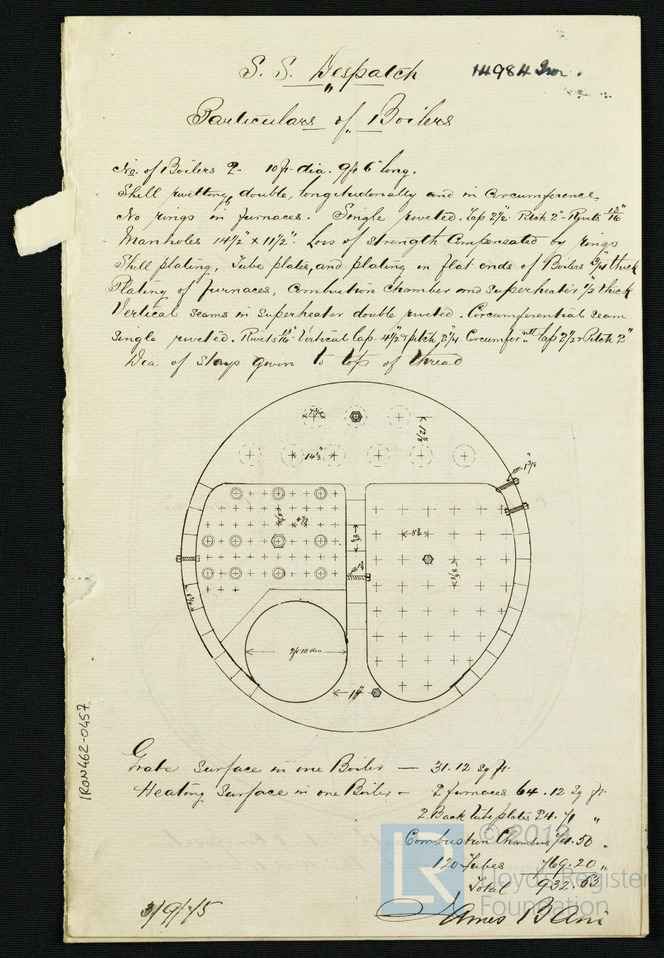 S. S. Despatch
14984 Iron
Particulars of Boilers
No. of Boilers 2- 10ft dia. 9ft 6" long.
Shell rivetting, double, longitudionally and in Circumference.
No rings in furnaces. Single riveted. Lap 2½" Pitch 2" Rivets 13/16"
Manholes 14½" x 11½". Loss of Strength Compensated by rings
Shell plating, Tube plates, and plating on flat ends of Boilers 3/4 thick
Plating of furnaces, Combustion Chamber and Superheater ½ thick
Vertical seams in Superheater double riveted. Circumferential seam
Single riveted. Rivets Vertical lap Pitch 2¾ Circumfer lap 2½ Pitch 2"
Dia of Stays given to top of thread
14½"
8¾
2ft 10 dia
14"
Grate Surface in one Boiler — 31.12 Sq ft.
Heating Surface in one Boiler - 2 furnaces 64.12 Sq ft.
2 Back tube plates 24. "
Combustion Chambers .50 "
120 Tubes 769.20 "
Total 932.63
3/9/75
James
IRON462-0457
© 2019
LR
Lloyd's Register
Foundation